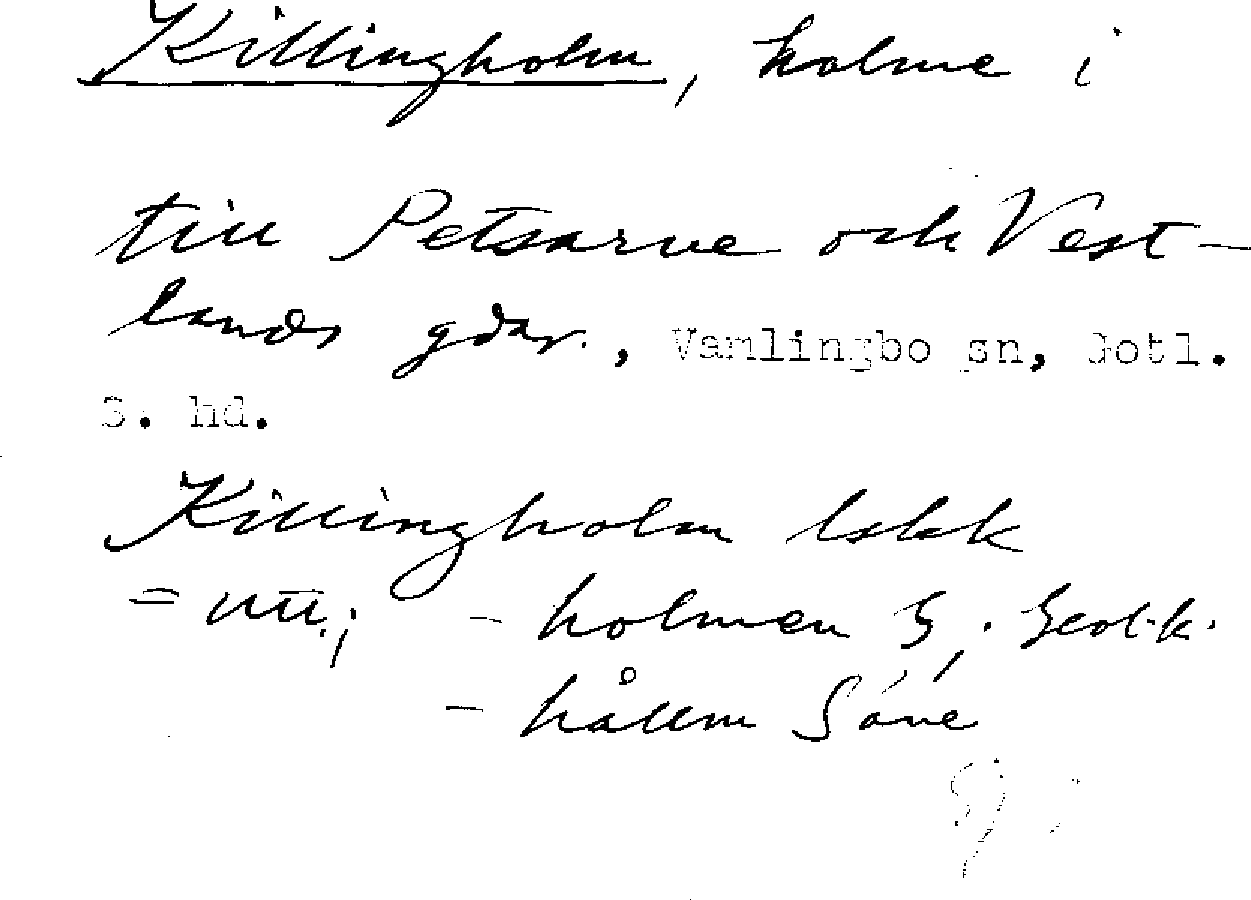 Killingholm, holme i
till Petsarve och Vest-
lands gdar., Vamlingbo sn, Gotl.
S. hd.
Killingholm lskk
= utt.; - holmen G; Geol.k.
- hållm Säve